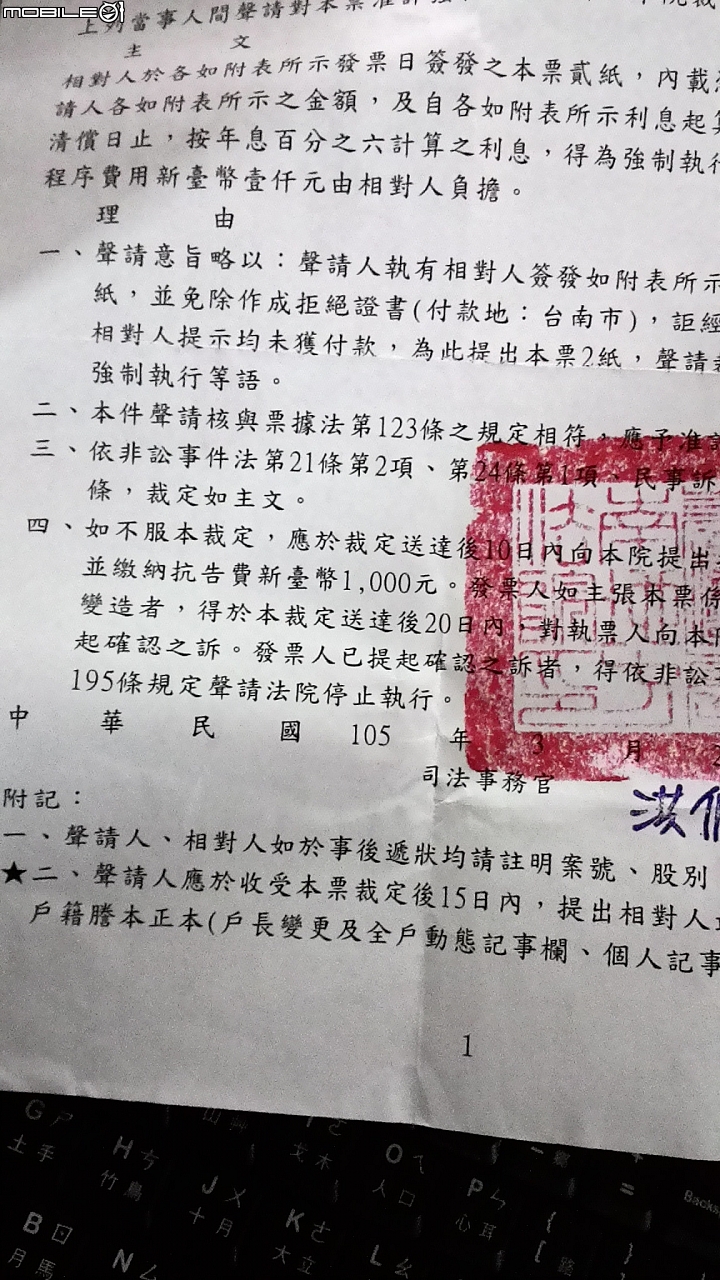 mobile01
上列當事人間聲請對本票准許強
主 文
相對人於各如附表所示發票日簽發之本票貳紙，內載
請人各如附表所示之金額，及自各如附表所示利息起
清償日止，按年息百分之六計算之利息，得為強制執行
程序費用新臺幣壹仟元由相對人負擔。
理 由
一、聲請意旨略以：聲請人執有相對人簽發如附表所示
紙，並免除作成拒絕證書(付款地：台南市)，詎經
相對人提示均未獲付款，為此提出本票2紙，聲請
強制執行等語。
二、本件聲請核與票據法第123條之規定相符，應予准
三、依非訟事件法第21條第2項、第24條第1項、民事訴
條，裁定如主文。
四、如不服本裁定，應於裁定送達後10日內向本院提出
並繳納抗告費新臺幣1,000元。發票人如主張本票係
變造者，得於本裁定送達後20日內，對執票人向本
起確認之訴。發票人已提起確認之訴者，得依非訟
195條規定聲請法院停止執行。
中 華 民 國 105 年 3 月 2
司法事務官
洪
附記：
一、聲請人、相對人如於事後遞狀均請註明案號、股別
★二、聲請人應於收受本票裁定後15日內，提出相對人
戶籍謄本正本(戶長變更及全戶動態記事欄、個人記事
1
G ㄕ 土 手
H ㄘ 竹 鳥
J ㄨ 十 月
K ㄜ 大 立
O ㄟ 人 口
P ㄣ 心 耳
=
{ [
} ]
Backs
B ㄖ 月 馬
N ㄙ
L ㄠ